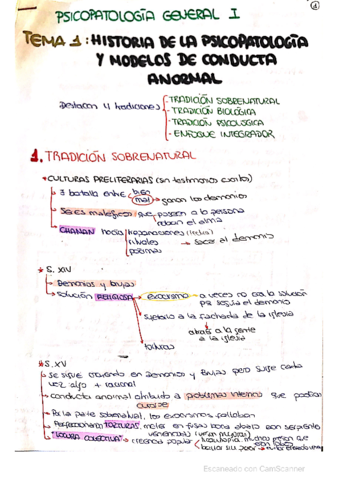 1
PSICOPATOLOGÍA GENERAL I
TEMA 1: HISTORIA DE LA PSICOPATOLOGÍA
Y MODELOS DE CONDUCTA
ANORMAL
Destacan 4 tradiciones
- TRADICIÓN SOBRENATURAL
- TRADICIÓN BIOLÓGICA
- TRADICIÓN PSICOLÓGICA
- ENFOQUE INTEGRADOR
1. TRADICIÓN SOBRENATURAL
* CULTURAS PRELITERARIAS (sin testimonios escritos)
batalla entre bien
mal → ganan los demonios
Seres maléficos que poseen a la persona
roban el alma
CHAMAN hacía trepanaciones
rituales → sacar el demonio
pócimas
* S. XIV
Demonios y brujas
solución RELIGIOSA → exorcismo → a veces no era la solución
seguía el demonio
sujetarlo a la fachada de la iglesia
atraía a la gente
a la iglesia
torturas
* S. XV
se sigue creyendo en demonios y brujas pero surge cada
vez algo + racional
conducta anormal atribuida a problemas internos que podían
curarse
Por la parte sobrenatural, los exorcismos fallaban
Perfeccionaron TORTURAS, meter en fosa boca abajo con serpiente
venenosas
"LOCURA COLECTIVA" → creencia popular
Escaneado con CamScanner